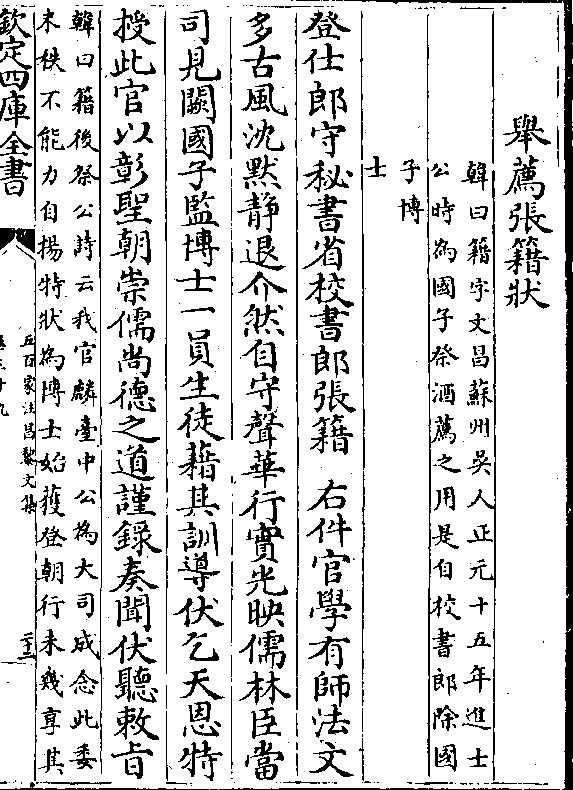 舉薦張籍狀
韓曰籍字文昌蘇州吳人正元十五年進士
公時為國子祭酒薦之用是自校書郎除國
子博
士
登仕郎守秘書省校書郎張籍　右件官學有師法文
多古風沈默静退介然自守聲華行實光映儒林臣當
司見闕國子監博士一員生徒藉其訓導伏乞天恩特
授此官以彰聖朝崇儒尚德之道謹錄奏聞伏聽敕旨
韓曰籍後祭公詩云我官麟臺中公為大司成念此委
末秩不能力自揚特狀為博士始獲登朝行未幾享其
欽定四庫全書
五百家注昌黎文集
二十三